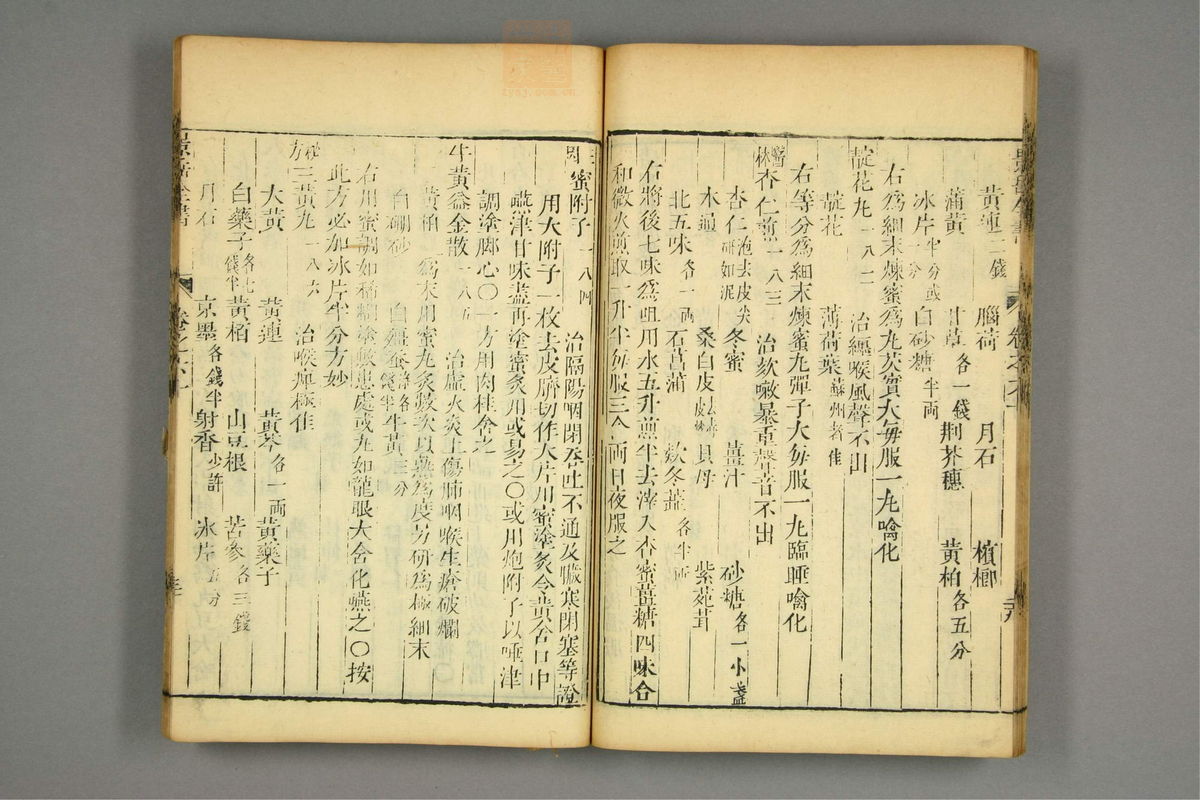 黃連二錢 腦荷 月石 檳榔
蒲黃 甘草各一錢 荆芥穗 黃柏各五分
冰片半分或一分 白砂糖半兩
右爲細末煉蜜爲丸芡實大每服一丸噙化
靛花丸一八二 治纏喉風聲不出
靛花 薄荷葉蘇州者佳
右等分爲細末煉蜜丸彈子大每服一丸臨睡噙化
醫林杏仁煎一八三 治欬嗽暴重聲音不出
杏仁泡去皮尖研如泥 冬蜜 薑汁 砂糖各一小盞
木通 桑白皮 貝母
北五味各一兩 石菖蒲 欵冬蕋各半兩 紫菀茸
右將後七味爲咀用水五升煎半去滓入杏蜜薑糖四味合
和微火煎取一升半每服三合兩日夜服之
蜜附子一八四 治隔陽咽閉吞吐不通及臟寒閉塞等證
用大附子一枚去皮臍切作大片用蜜塗炙令黃含口中
嚥津甘味盡再塗蜜炙用或易之〇或用炮附子以唾津
調塗脚心〇一方用肉桂含之
牛黃益金散一八五 治虛火炎上傷肺咽喉生瘡破爛
黃柏爲末用蜜丸炙數次以燕爲度另研爲極細末
白硼砂 白殭蠶各錢半 牛黃三分
右用蜜調如稀糊塗敷患處或丸如龍眼大含化嚥之〇按
此方必加冰片半分方妙
秘方三黃丸一八六 治喉痺極佳
大黃 黃連 黃芩各一兩 黃藥子
白藥子各七錢半 黃栢 山豆根 苦參各三錢
月石 京墨各錢半 射香少許 冰片五分